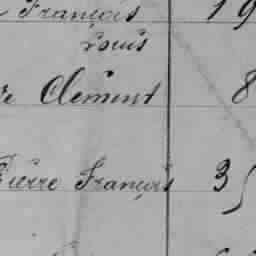 François 19
Louis
Clément 8
Pierre François 35